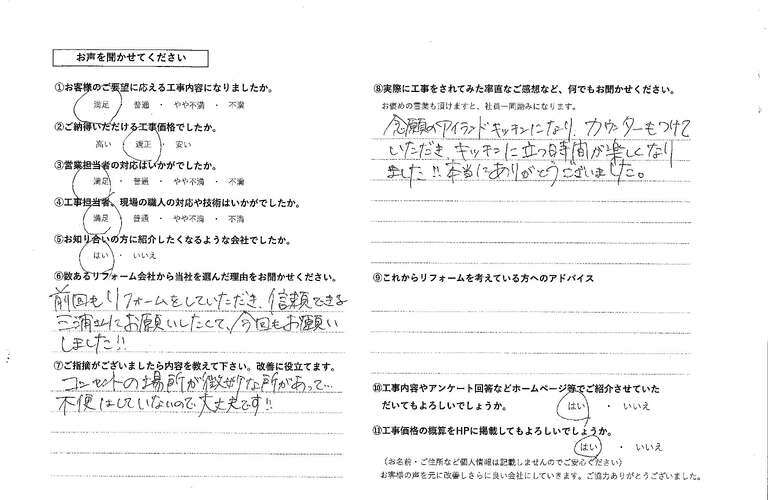 お声を聞かせてください
①お客様のご要望に応える工事内容になりましたか。
満足 ・ 普通 ・ やや不満 ・ 不満
②ご納得いただける工事価格でしたか。
高い ・ 適正 ・ 安い
③営業担当者の対応はいかがでしたか。
満足 ・ 普通 ・ やや不満 ・ 不満
④工事担当者、現場の職人の対応や技術はいかがでしたか。
満足 ・ 普通 ・ やや不満 ・ 不満
⑤お知り合いの方に紹介したくなるような会社でしたか。
はい ・ いいえ
⑥数あるリフォーム会社から当社を選んだ理由をお聞かせください。
前回もリフォームをしていただき、信頼できる
三浦さんにお願いしたくて、今回もお願い
しました!!
⑦ご指摘がございましたら内容を教えて下さい。改善に役立てます。
コンセントの場所が微妙な所があって…
不便はしていないので大丈夫です!!
⑧実際に工事をされてみた率直なご感想など、何でもお聞かせください。
お褒めの言葉も頂けますと、社員一同励みになります。
念願のアイランドキッチンになり、カウンターもつけて
いただき、キッチンに立つ時間が楽しくなり
ました!!本当にありがとうございました。
⑨これからリフォームを考えている方へのアドバイス
⑩工事内容やアンケート回答などホームページ等でご紹介させていた
だいてもよろしいでしょうか。 はい ・ いいえ
⑪工事価格の概算をHPに掲載してもよろしいでしょうか。
はい ・ いいえ
(お名前・ご住所など個人情報は記載しませんのでご安心ください)
お客様の声を元に改善しさらに良い会社にしていきます。ご協力ありがとうございました。